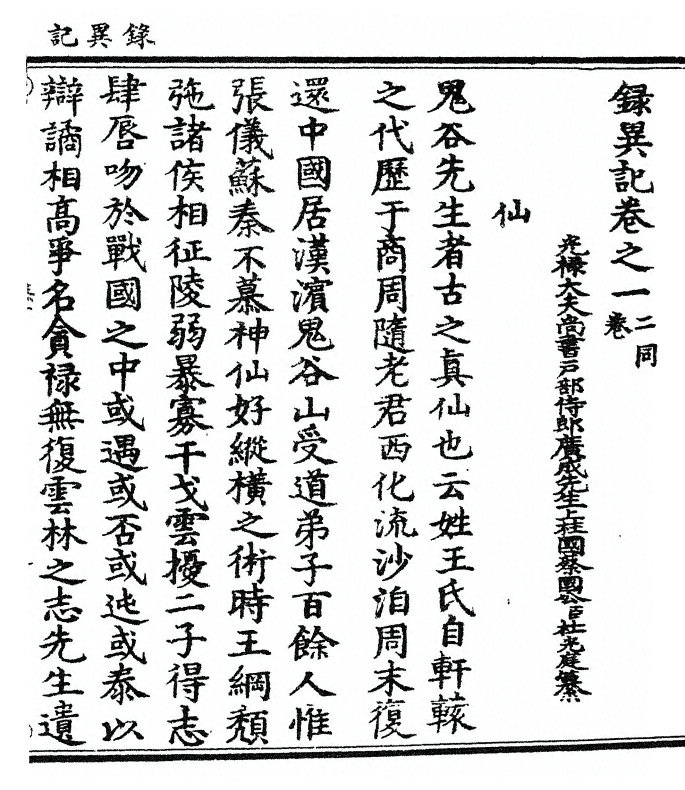 錄異記
録異記卷之一二同卷
光禄大夫尚書戸部侍郎廣成先生上柱國蔡國公臣杜光庭纂
仙
鬼谷先生者古之真仙也云姓王氏自軒轅
之代歷于商周隨老君西化流沙洎周末復
還中國居漢濵鬼谷山受道弟子百餘人惟
張儀蘇秦不慕神仙好縱橫之術時王綱頽
弛諸侯相征陵弱暴寡干戈雲擾二子得志
肆唇吻於戰國之中或遇或否或迍或泰以
辯譎相高爭名貪禄無復雲林之志先生遺